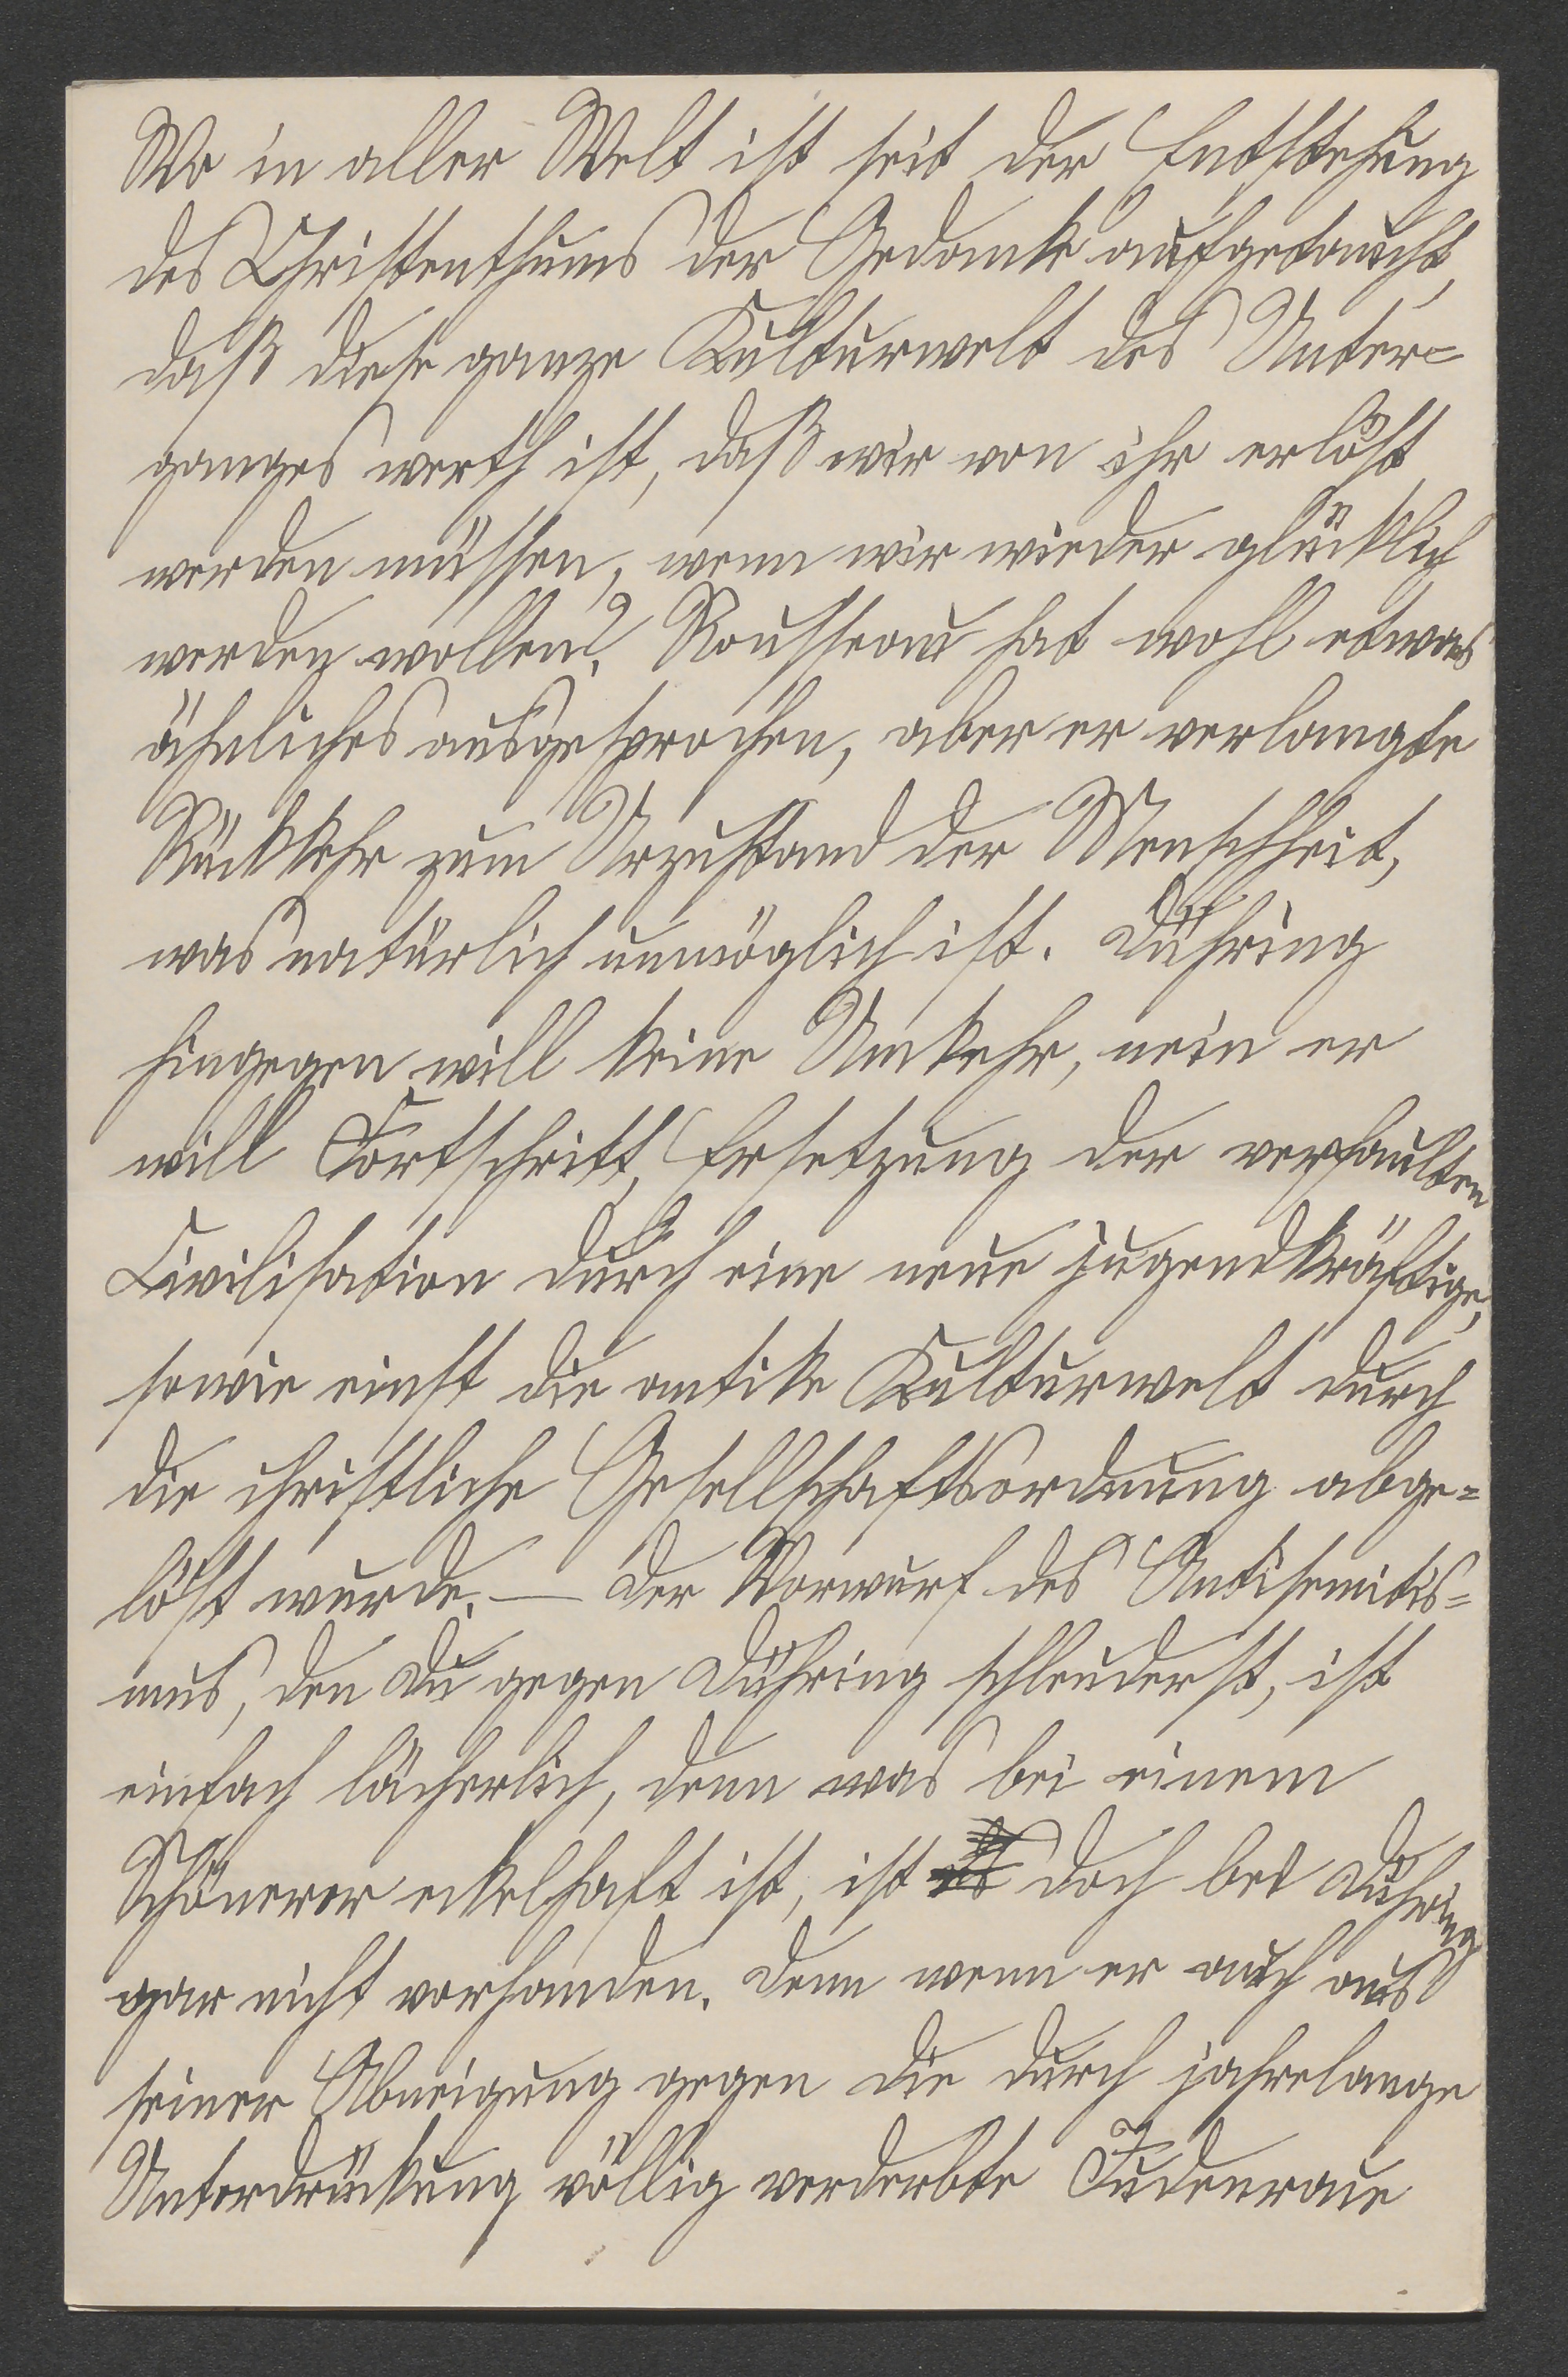 Wo in aller Welt ist seit der Entstehung
des Christenthums der Gedanke aufgetaucht,
daß diese ganze Kulturwelt des Unter=
ganges werth ist, daß wir von ihr erlöst
werden müssen, wenn wir wieder glücklich
werden wollen? Rousseau hat wohl etwas
ähnliches ausgesprochen, aber er verlangte
Rückkehr zum Urzustand der Menschheit,
was natürlich unmöglich ist. Dühring
hingegen will keine Umkehr, nein er
will Fortschritt, Ersetzung der verfaulten
Civilisation durch eine neue jugendkräftige,
sowie einst die antike Kulturwelt durch
die christliche Gesellschaftsordnung abge=
löst wurde. — Der Vorwurf des Antisemitis=
mus, den Du gegen Dühring schleuderst, ist
einfach lächerlich, denn was bei einem
Schönerer ekelhaft ist, ist doch bei Dühring
gar nicht vorhanden. Denn wenn er auch aus
seiner Abneigung gegen die durch jahrelange
Unterdrückung völlig verderbte Judenrace